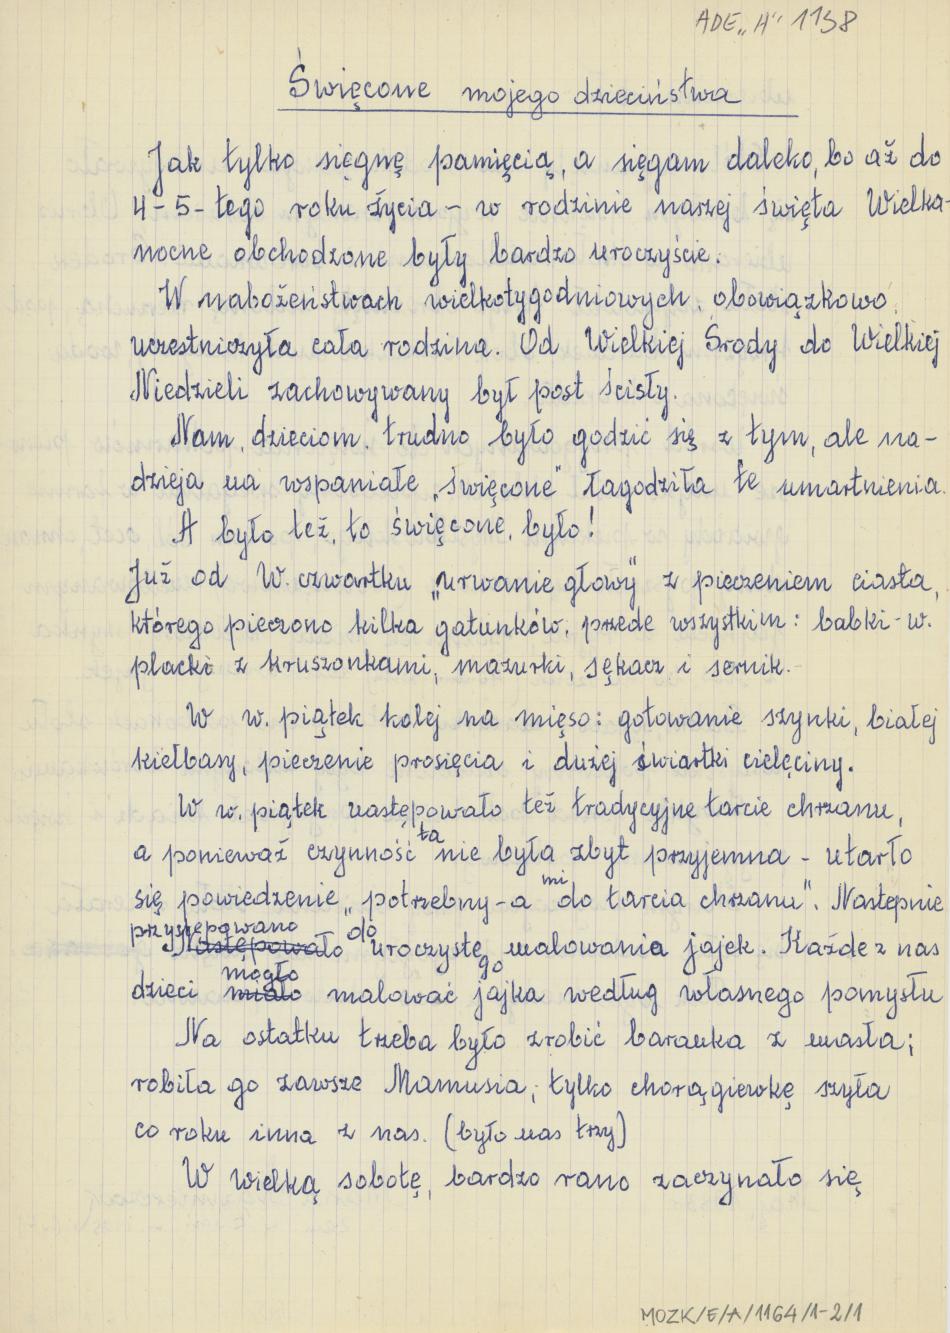 ADE „A" 1138
Święcone mojego dzieciństwa
Jak tylko sięgnę pamięcią, a sięgam daleko, bo aż do
4-5-tego roku życia - w rodzinie naszej święta Wielka-
nocne obchodzone były bardzo uroczyście.
W nabożeństwach wielkotygodniowych obowiązkowo
uczestniczyła cała rodzina. Od Wielkiej Środy do Wielkiej
Niedzieli zachowywany był post ścisły.
Nam, dzieciom, trudno było godzić się z tym, ale na-
dzieja na wspaniałe „święcone" łagodziła te umartnienia.
A było też, to święcone, było!
Już od W. czwartku „urwanie głowy" z pieczeniem ciasta,
którego pieczono kilka gatunków, przede wszystkim: babki- w.
placki z kruszonkami, mazurki, sękacz i sernik.
W w. piątek kolej na mięso: gotowanie szynki, białej
kiełbasy, pieczenie prosięcia i dużej świartki cielęciny.
W w. piątek następowało też tradycyjne tarcie chrzanu,
a ponieważ czynność ta nie była zbyt przyjemna - utarło
się powiedzenie „potrzebny-a mi do tarcia chrzanu". Nastepnie
przystępowano do
Następowało uroczystego malowania jajek. Każde z nas
mogło
dzieci miało malować jajka według własnego pomysłu
Na ostatku trzeba było zrobić baranka z masła;
robiła go zawsze Mamusia, tylko chorągiewkę szyła
co roku inna z nas. (było nas trzy)
W wielką sobotę, bardzo rano zaczynało się
MOZK/E/A/1164/1-2/1